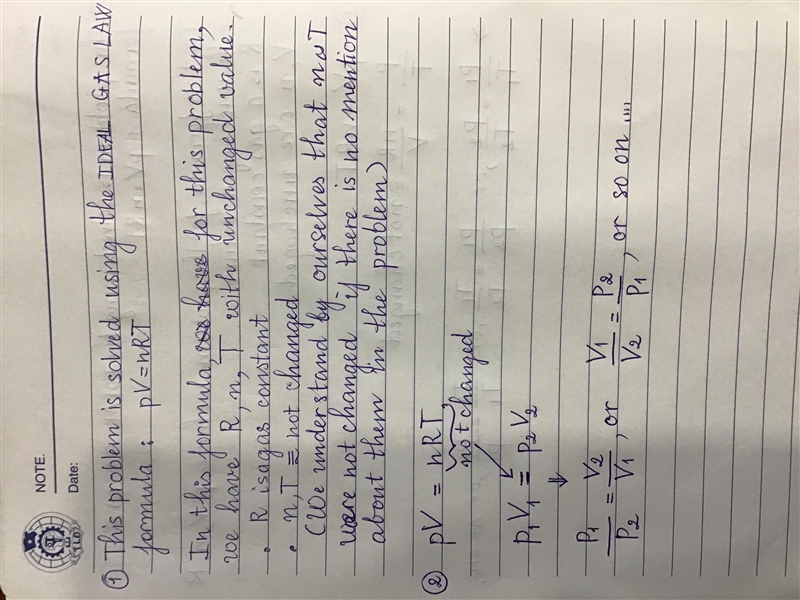 NOTE.
Date:
① This problem is solved using the IDEAL GAS LAW
formula : pV = nRT
In this formula, we have for this problem,
we have R, n, T with unchanged value.
• R is a gas constant
• n, T = not changed
(We understand by ourselves that n & T
were not changed if there is no mention
about them in the problem)
② pV = nRT
not changed
P₁V₁ = P₂V₂
⇓
P₁/P₂ = V₂/V₁ , or V₁/V₂ = P₂/P₁ , or so on ....